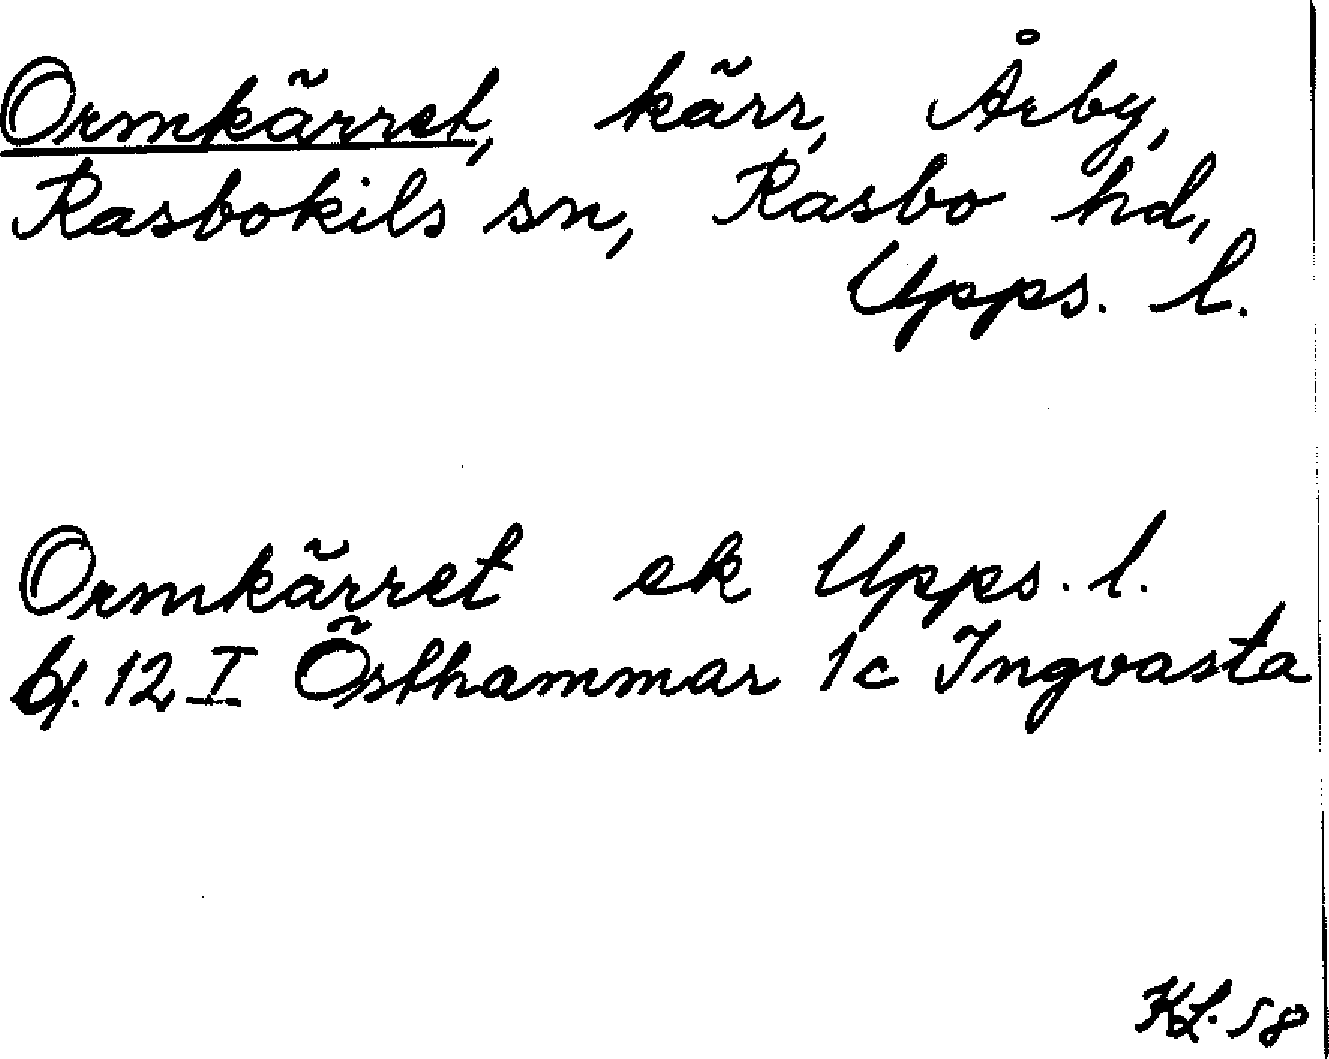 Ormkärret, kärr, Årby,
Rasbokils sn, Rasbo hd,
Upps. l.
Ormkärret ek Upps. l.
bl. 12 I Östhammar 1c Ingvasta
KL. 58